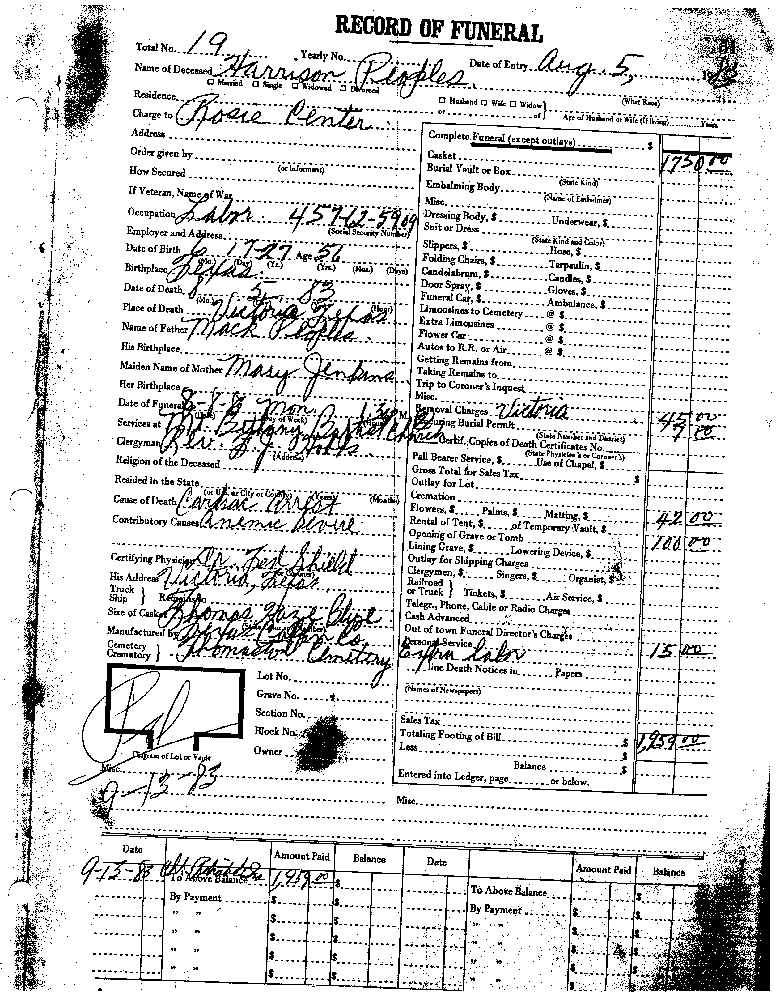 RECORD OF FUNERAL
Total No. 19 Yearly No. Date of Entry Aug. 5,
Name of Deceased Harrison Peoples
☐ Married ☐ Single ☐ Widowed ☐ Divorced
Residence ☐ Husband ☐ Wife ☐ Widow (What Race)
of of Age of Husband or Wife (If living) Years
Charge to Rosie Center
Address
Order given by
(or Informant)
How Secured
If Veteran, Name of War
Occupation Labor
(Social Security Number)
Employer and Address
Date of Birth 6 17-27 Age 56
(Mo.) (Day) (Yr.) (Yrs.) (Mos.) (Days)
Birthplace Texas
Date of Death 8 5 83
(Mo.) (Hour)
Place of Death Victoria Texas
Name of Father Mack Peoples
His Birthplace
Maiden Name of Mother Mary Jenkins
Her Birthplace
Date of Funeral 8-7-8 Mon. 1:30 M.
Services at Mt. Bethany Baptist Church
Clergyman Rev.
(Address)
Religion of the Deceased
Resided in the State
(or U.S., or City or County) (Years) (Months)
Cause of Death Cardiac Arrest
Contributory Causes Anemic
Certifying Physician Dr. Ted Shield
His Address Victoria, Texas
Truck
Ship } Remains to
Size of Casket Thomas
Manufactured by Texas Co.
Cemetery
Crematory } Thomaston Cemetery
Lot No.
Grave No.
Section No.
Block No.
Owner
Pd
Diagram of Lot or Vault
Misc.
9-13-83
Complete Funeral (except outlays) $
Casket 1750 00
Burial Vault or Box
(State Kind)
Embalming Body
(Name of Embalmer)
Misc.
Dressing Body, $ Underwear, $
Suit or Dress
(State Kind and Color)
Slippers, $ Hose, $
Folding Chairs, $ Tarpaulin, $
Candelabrum, $ Candles, $
Door Spray, $ Gloves, $
Funeral Car, $ Ambulance, $
Limousines to Cemetery @ $
Extra Limousines @ $
Flower Car @ $
Autos to R.R. or Air @ $
Getting Remains from
Taking Remains to
Trip to Coroner's Inquest
Misc.
Removal Charges Victoria 45 00
Securing Burial Permit 7 00
(State Number and District)
Certif. Copies of Death Certificates No.
(State Physician's or Coroner's)
Pall Bearer Service, $ Use of Chapel, $
Gross Total for Sales Tax $
Outlay for Lot
Cremation
Flowers, $ Palms, $ Matting, $ 42 00
Rental of Tent, $ of Temporary Vault, $
Opening of Grave or Tomb 100 00
Lining Grave, $ Lowering Device, $
Outlay for Shipping Charges
Clergymen, $ Singers, $ Organist, $
Railroad
or Truck } Tickets, $ Air Service, $
Telegr., Phone, Cable or Radio Charges
Cash Advanced
Out of town Funeral Director's Charges
Personal Service
Extra Labor 15 00
Line Death Notices in Papers
(Names of Newspapers)
Sales Tax
Totaling Footing of Bill $ 1,959 00
Less $
Balance $
Entered into Ledger, page or below.
Misc.
Date Amount Paid Balance Date Amount Paid Balance
9-13-83 To Above Balance 1,959 00 $ To Above Balance $
By Payment $ $ By Payment $ $
" " $ $ " " $ $
" " $ $ " " $ $
" " $ $ " " $ $
" " $ $ " " $ $